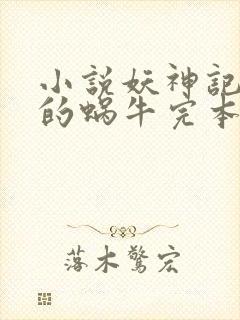 小說妖神記
的蝸牛完本
落木驚宏